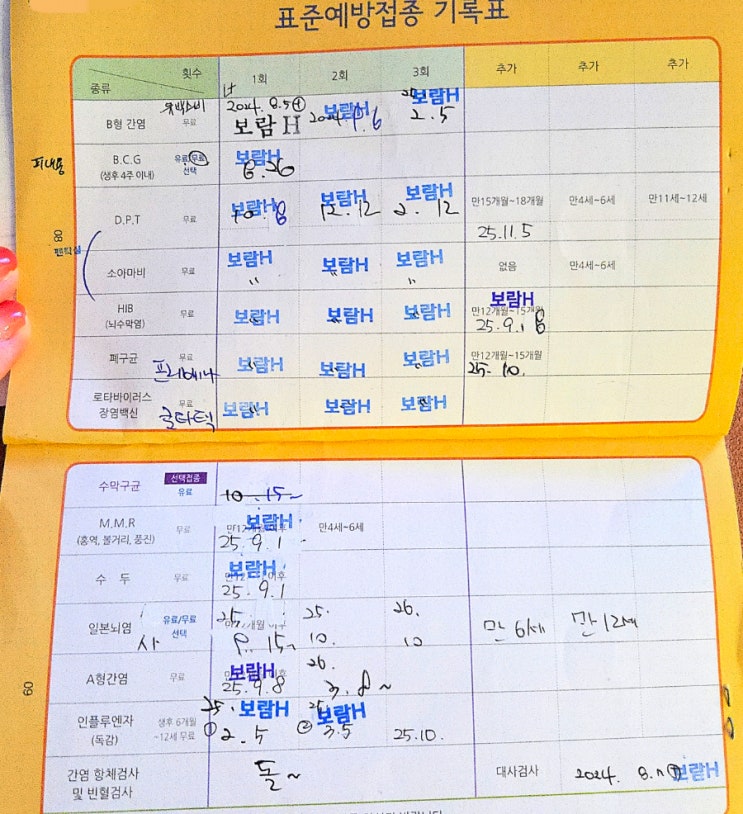 표준예방접종 기록표
종류 횟수 1회 2회 3회 추가 추가 추가
B형 간염 무료 2024. 8.5 보람H 보람H 보람H 2.5
피내용 B.C.G (생후 4주 이내) 유료/무료 선택 보람H 8.26
D.P.T 무료 보람H 보람H 12.12 보람H 2.12 만15개월~18개월 25.11.5 만4세~6세 만11세~12세
펜탁심
소아마비 무료 보람H 〃 보람H 〃 보람H 〃 없음 만4세~6세
HIB (뇌수막염) 무료 보람H 보람H 보람H 보람H 만12개월~15개월 25.9.1
폐구균 무료 프리베나 보람H 보람H 보람H 만12개월~15개월 25. 10.
로타바이러스 장염백신 무료 로타텍 보람H 보람H 보람H
수막구균 선택접종 유료 10.15~
M.M.R (홍역, 볼거리, 풍진) 무료 보람H 25.9.1 만4세~6세
수 두 무료 보람H 25.9.1
일본뇌염 유료/무료 선택 사 25. 15~ 25. 10. 26. 10 만 6세 만 12세
A형간염 무료 보람H 25.9.8 26. 3.8~
인플루엔자 (독감) 생후 6개월 ~12세 무료 25. 보람H ① 2.5 25. 보람H ② 3.5 25.10.
간염 항체검사 및 빈혈검사 돌~ 대사검사 2024. 8. 보람H
60